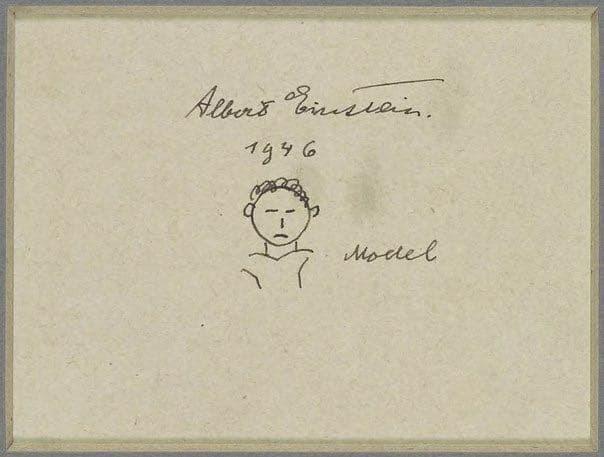 Albert Einstein.
1946
Model